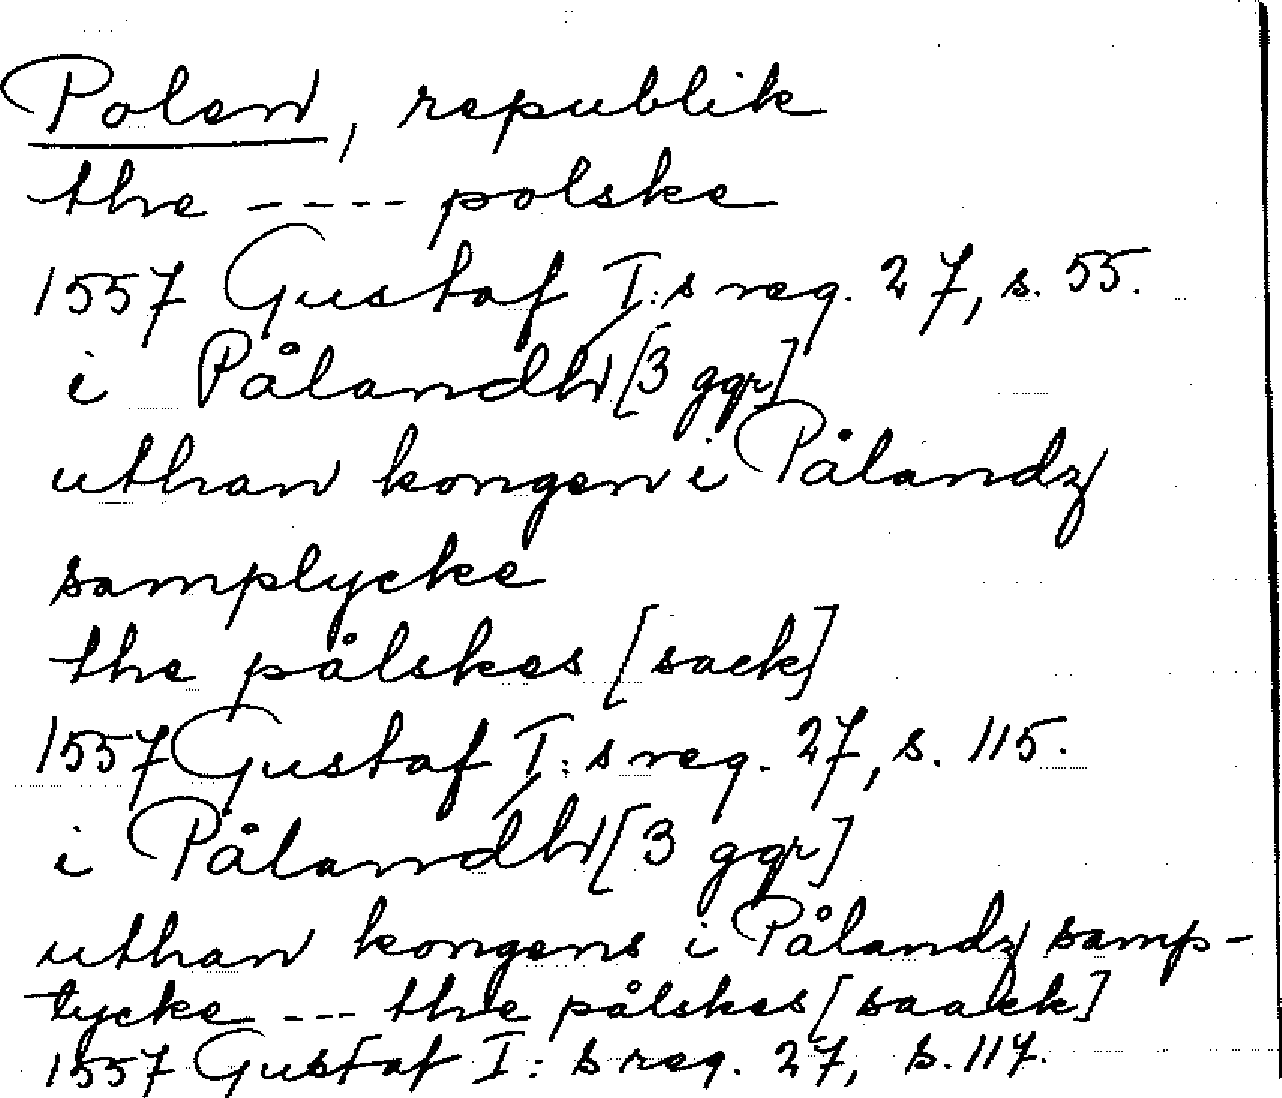 Polen, republik
the ---- polske
1557 Gustaf I:s reg. 27, s. 55.
i Pålandh [3 ggr]
uthan kongen i Pålandz
samplycke
the pålskes [sack]
1557 Gustaf I:s reg. 27, s. 115.
i Pålandh [3 ggr]
uthan kongens i Pålandz samp-
tycke --- the pålskes [saack]
1557 Gustaf I:s reg. 27, s. 117.